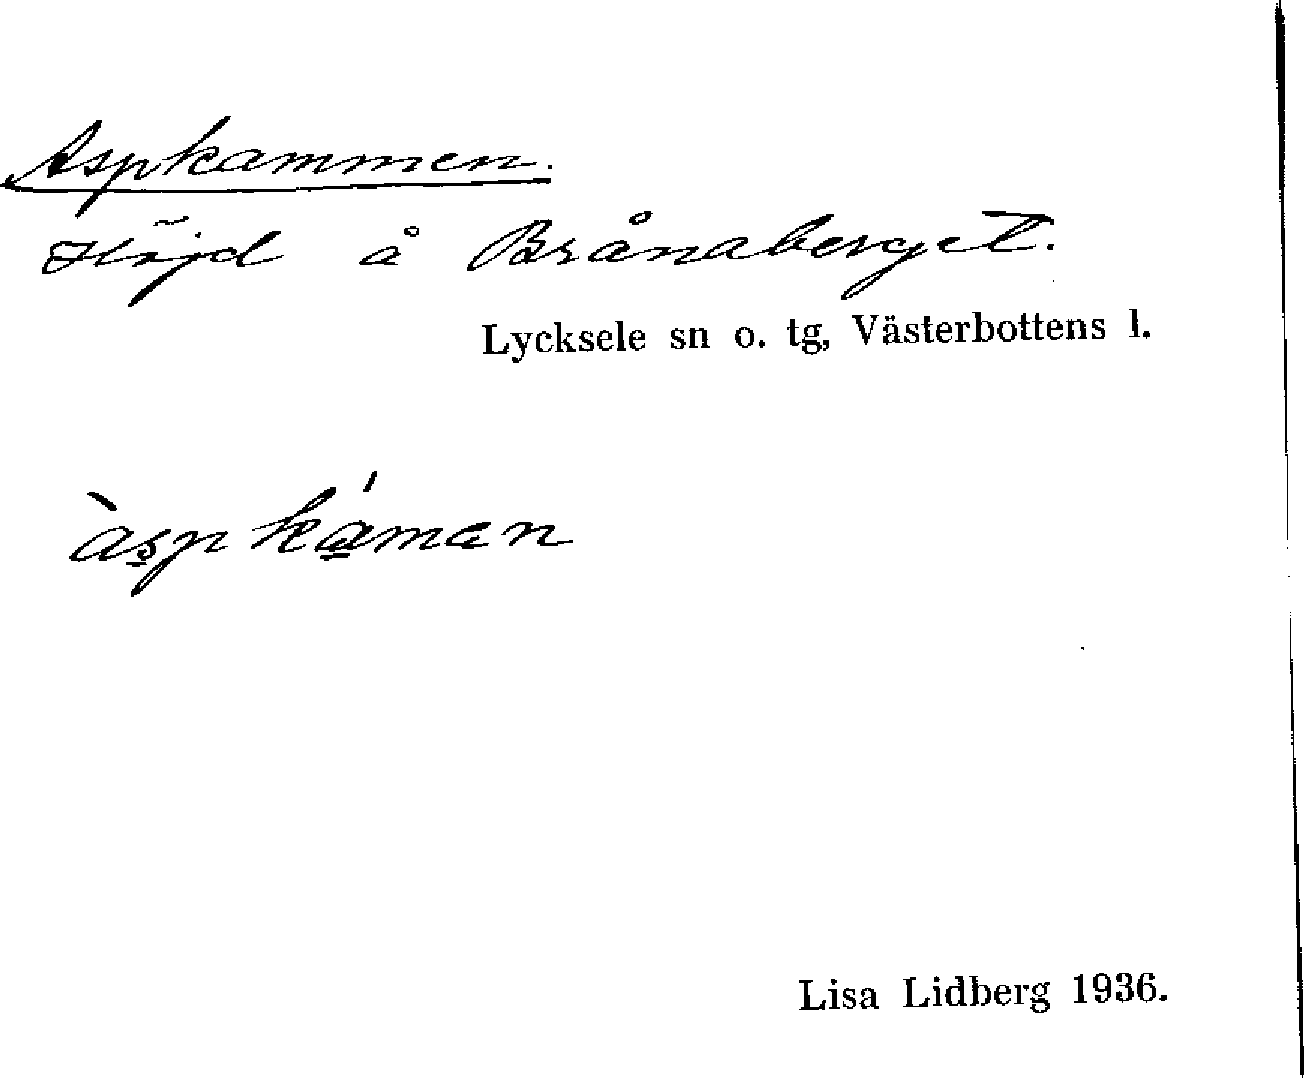 Aspkammen.
Höjd å Brånaberget.
Lycksele sn o. tg, Västerbottens l.
àspkáman
Lisa Lidberg 1936.